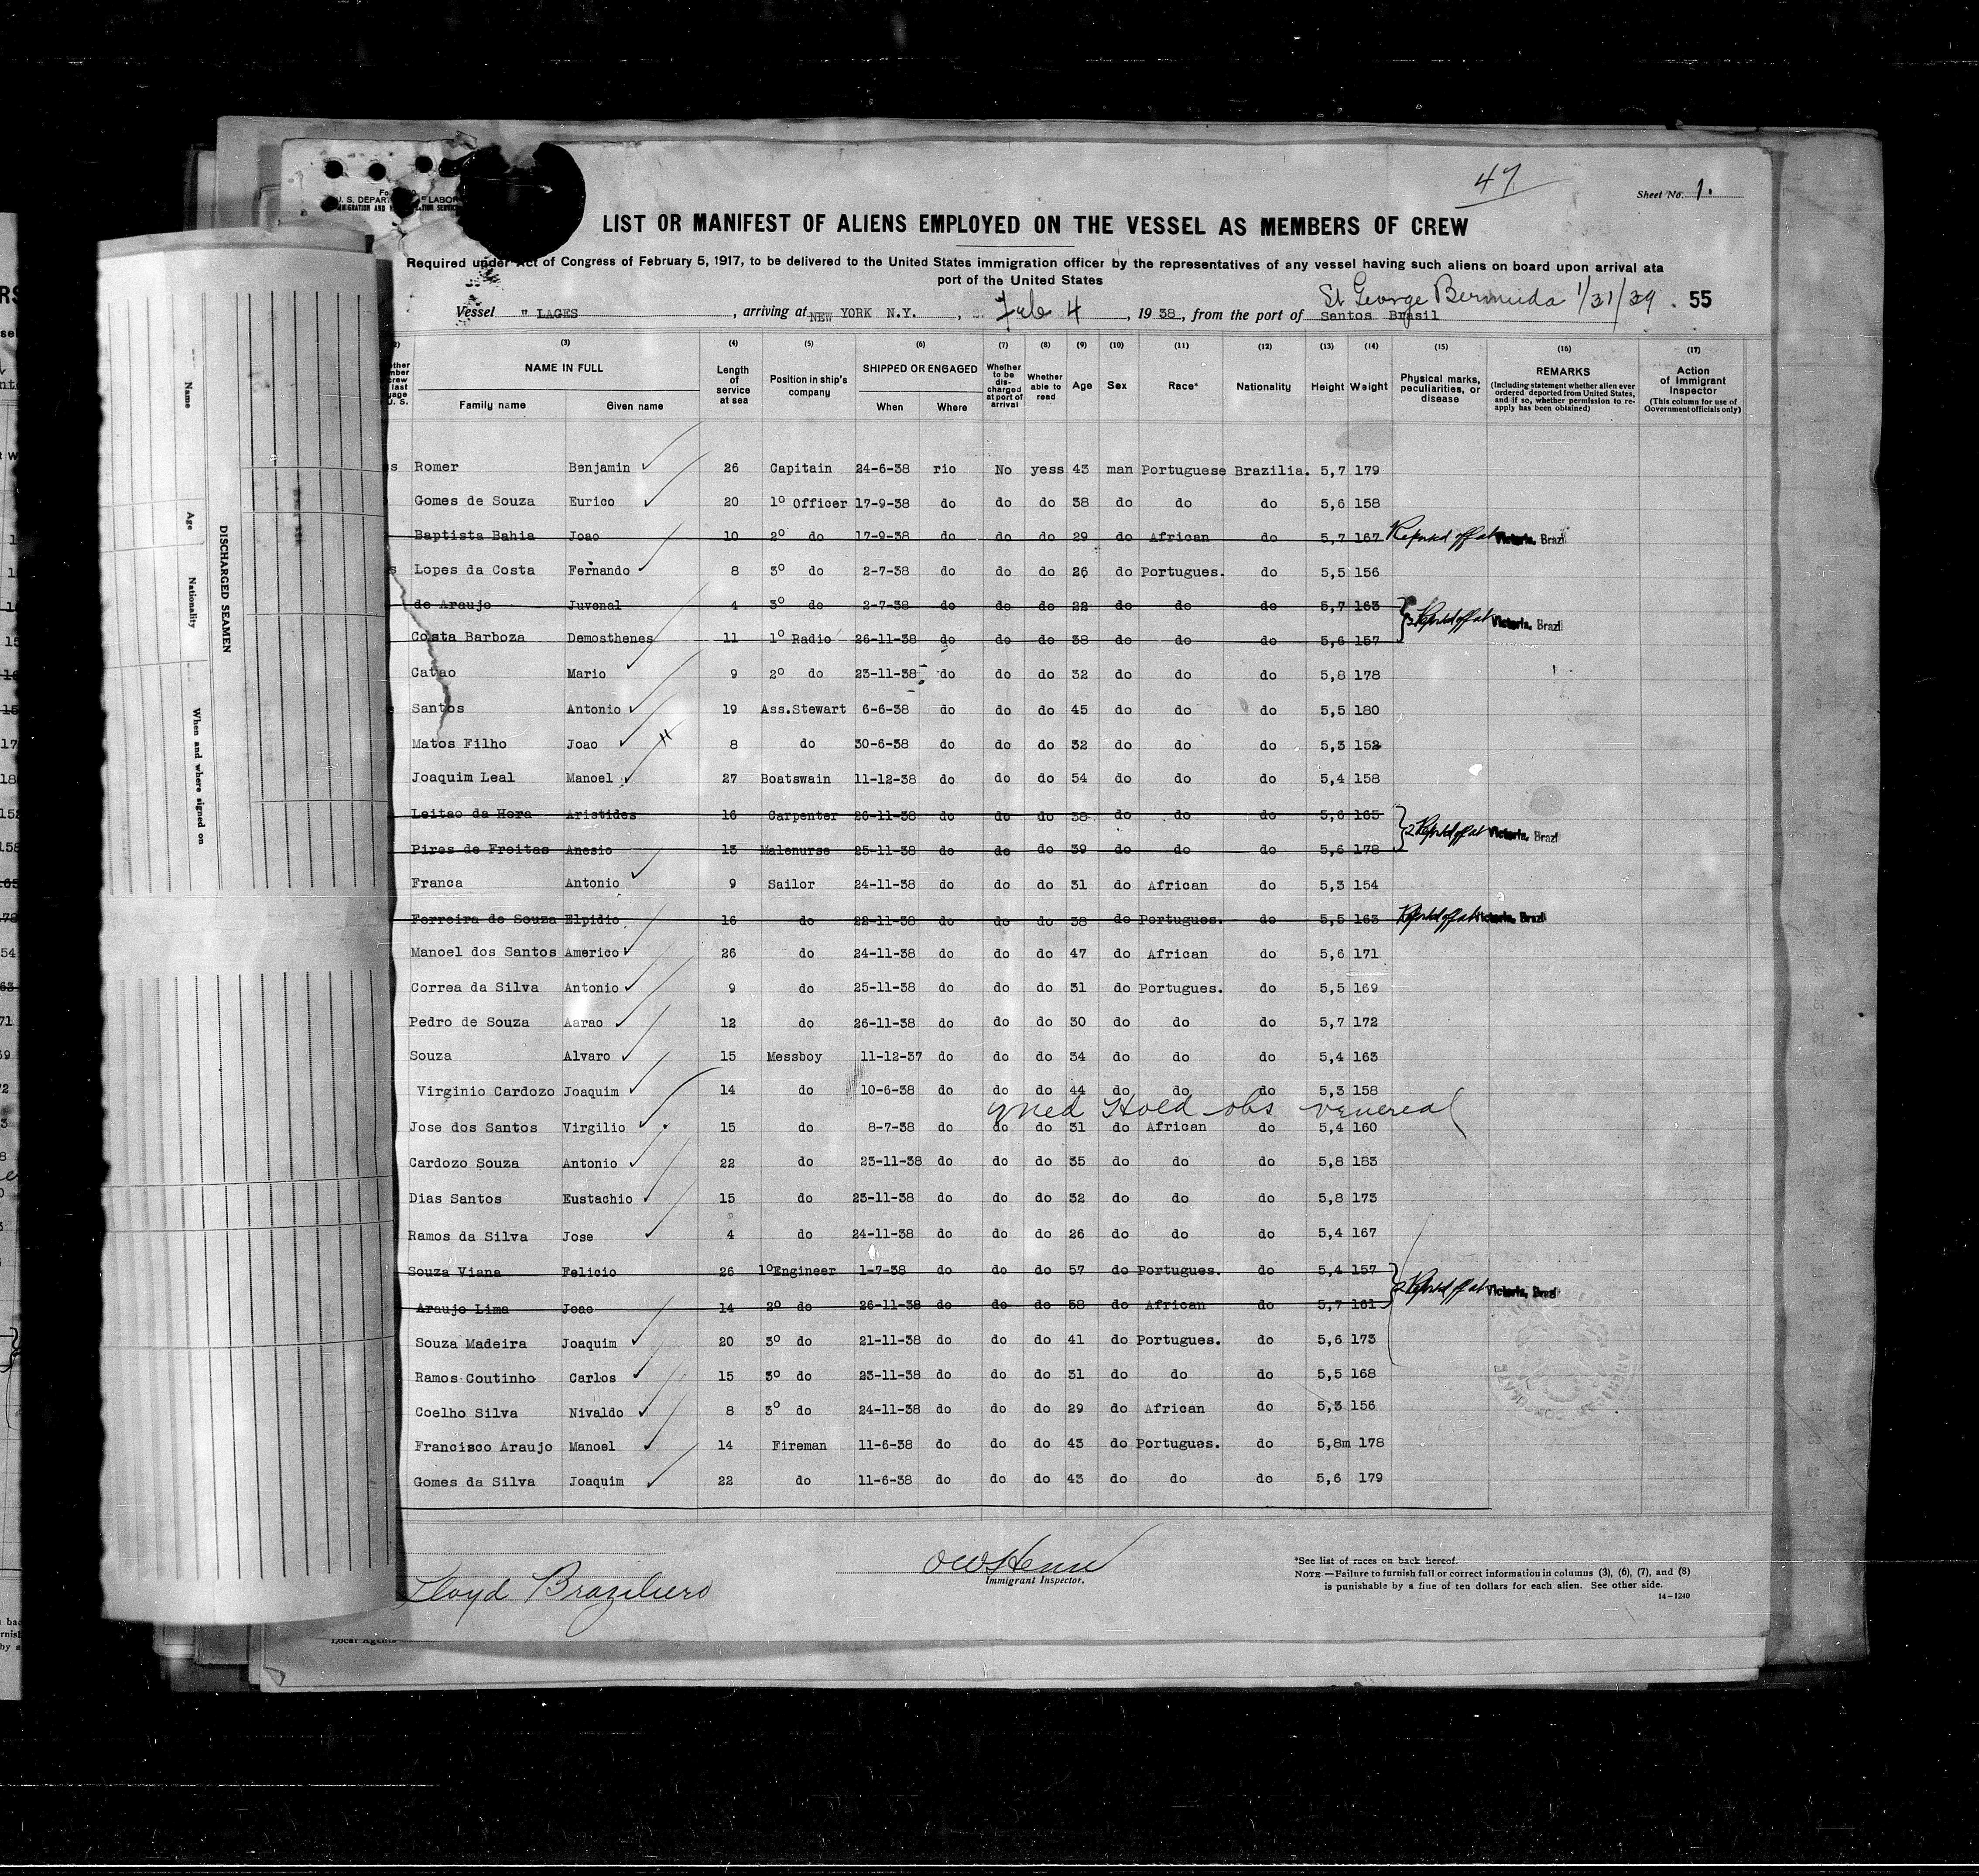 47
Sheet No. 1.
U. S. DEPART
LABOR
LIST OR MANIFEST OF ALIENS EMPLOYED ON THE VESSEL AS MEMBERS OF CREW
Required under Act of Congress of February 5, 1917, to be delivered to the United States immigration officer by the representatives of any vessel having such aliens on board upon arrival at a
port of the United States
St George Bermuda 1/31/39 . 55
Vessel " LAGES , arriving at NEW YORK N.Y. , Feb 4 , 19 38 , from the port of Santos Brasil
(3) (4) (5) (6) (7) (8) (9) (10) (11) (12) (13) (14) (15) (16) (17)
NAME IN FULL
Family name Given name
Length of service at sea
Position in ship's company
SHIPPED OR ENGAGED
When Where
Whether to be discharged at port of arrival
Whether able to read
Age Sex Race* Nationality Height Weight
Physical marks, peculiarities, or disease
REMARKS
(Including statement whether alien ever ordered deported from United States, and if so, whether permission to reapply has been obtained)
Action of Immigrant Inspector
(This column for use of Government officials only)
Romer Benjamin 26 Capitain 24-6-38 rio No yess 43 man Portuguese Brazilia. 5,7 179
Gomes de Souza Eurico 20 1º Officer 17-9-38 do do do 38 do do do 5,6 158
Baptista Bahia Joao 10 2º do 17-9-38 do do do 29 do African do 5,7 167 Reported off at Victoria, Brazil
Lopes da Costa Fernando 8 3º do 2-7-38 do do do 26 do Portugues. do 5,5 156
de Araujo Juvenal 4 3º do 2-7-38 do do do 22 do do do 5,7 163
Costa Barboza Demosthenes 11 1º Radio 26-11-38 do do do 38 do do do 5,6 157 Reported off at Victoria, Brazil
Catao Mario 9 2º do 23-11-38 do do do 32 do do do 5,8 178
Santos Antonio 19 Ass.Stewart 6-6-38 do do do 45 do do do 5,5 180
Matos Filho Joao 8 do 30-6-38 do do do 32 do do do 5,3 152
Joaquim Leal Manoel 27 Boatswain 11-12-38 do do do 54 do do do 5,4 158
Leitao da Hora Aristides 16 Carpenter 26-11-38 do do do 38 do do do 5,6 165
Pires de Freitas Anesio 13 Malenurse 25-11-38 do do do 39 do do do 5,6 178 2 Reported off at Victoria, Brazil
Franca Antonio 9 Sailor 24-11-38 do do do 31 do African do 5,3 154
Ferreira de Souza Elpidio 16 do 22-11-38 do do do 38 do Portugues. do 5,5 163 Reported off at Victoria, Brazil
Manoel dos Santos Americo 26 do 24-11-38 do do do 47 do African do 5,6 171
Correa da Silva Antonio 9 do 25-11-38 do do do 31 do Portugues. do 5,5 169
Pedro de Souza Aarao 12 do 26-11-38 do do do 30 do do do 5,7 172
Souza Alvaro 15 Messboy 11-12-37 do do do 34 do do do 5,4 163
Virginio Cardozo Joaquim 14 do 10-6-38 do do do 44 do do do 5,3 158
Med Hold obs venereal
Jose dos Santos Virgilio 15 do 8-7-38 do do do 31 do African do 5,4 160
Cardozo Souza Antonio 22 do 23-11-38 do do do 35 do do do 5,8 183
Dias Santos Eustachio 15 do 23-11-38 do do do 32 do do do 5,8 173
Ramos da Silva Jose 4 do 24-11-38 do do do 26 do do do 5,4 167
Souza Viana Felicio 26 1ºEngineer 1-7-38 do do do 57 do Portugues. do 5,4 157
Araujo Lima Joao 14 2º do 26-11-38 do do do 58 do African do 5,7 161 2 Reported off at Victoria, Brazil
Souza Madeira Joaquim 20 3º do 21-11-38 do do do 41 do Portugues. do 5,6 173
Ramos Coutinho Carlos 15 3º do 23-11-38 do do do 31 do do do 5,5 168
Coelho Silva Nivaldo 8 3º do 24-11-38 do do do 29 do African do 5,3 156
Francisco Araujo Manoel 14 Fireman 11-6-38 do do do 43 do Portugues. do 5,8m 178
Gomes da Silva Joaquim 22 do 11-6-38 do do do 43 do do do 5,6 179
Lloyd Braziliero
Immigrant Inspector.
*See list of races on back hereof.
NOTE.—Failure to furnish full or correct information in columns (3), (6), (7), and (8)
is punishable by a fine of ten dollars for each alien. See other side.
14-1240
Local Agents
DISCHARGED SEAMEN
Name Age Nationality When and where signed on